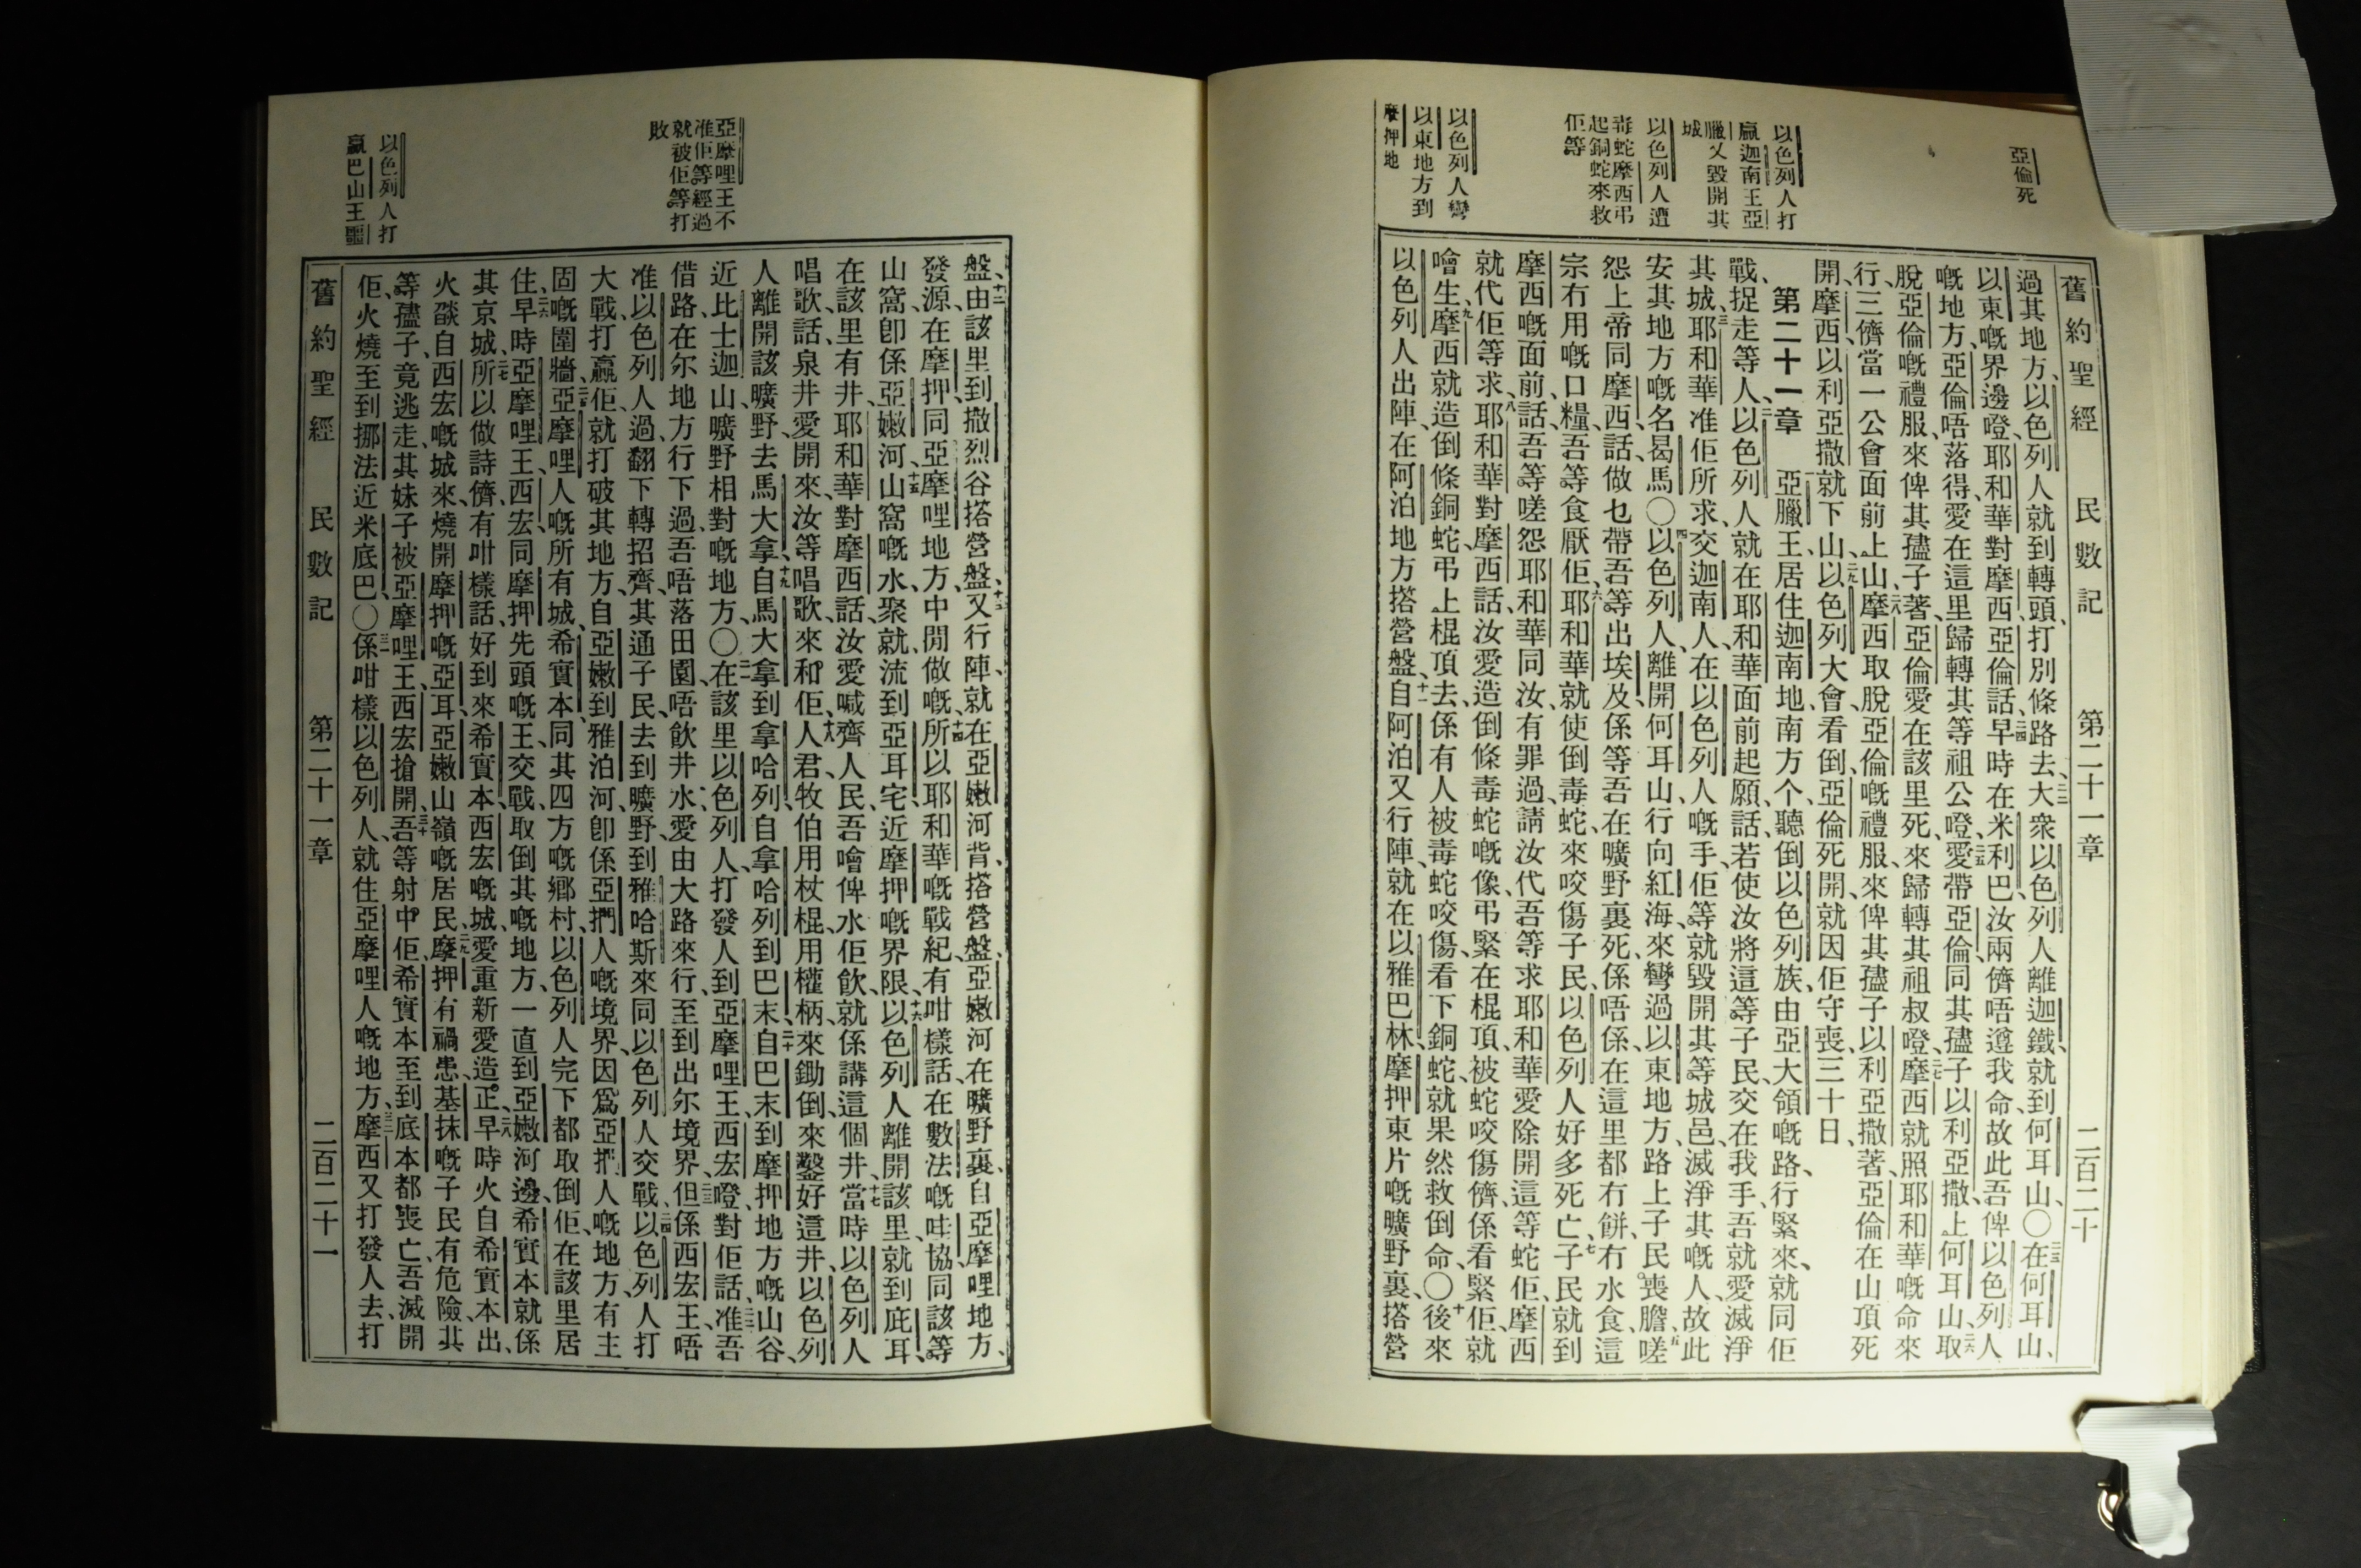 亞倫死
以色列人打
贏迦南王亞
臘又毀開其
城
以色列人遭
毒蛇摩西弔
起銅蛇來救
佢等
以色列人彎
以東地方到
摩押地
舊約聖經 民數記 第二十一章 二百二十
過其地方、以色列人就到轉頭、打別條路去、大衆以色列人離迦鐵、就到何耳山、〇在何耳山、
以東嘅界邊、嘥耶和華對摩西亞倫話、早時在米利巴汝兩儕唔遵我命、故此吾俾以色列人
嘅地方、亞倫唔落得、愛在這里歸轉其等祖公嘥、愛帶亞倫、同其孻子以利亞撒、上何耳山、取
脫亞倫嘅禮服、來俾其孻子著、亞倫愛在該里死、來歸轉其祖叔嘥、摩西就照耶和華嘅命來
行、三儕當一公會面前上山、摩西取脫亞倫嘅禮服、來俾其孻子以利亞撒著、亞倫在山頂死
開、摩西以利亞撒就下山、以色列大會看倒、亞倫死開、就因佢守喪三十日、
第二十一章 亞臘王、居住迦南地、南方个、聽倒以色列族、由亞大領嘅路、行緊來、就同佢
戰、捉走等人、以色列人就在耶和華面前起願話、若使汝將這等子民、交在我手、吾就愛滅淨
其城、耶和華准佢所求、交迦南人在以色列人嘅手、佢等就毀開其等城邑、滅淨其嘅人、故此
安其地方嘅名曷馬、〇以色列人、離開何耳山、行向紅海、來彎過以東地方、路上子民喪膽、嗟
怨上帝同摩西、話、做乜帶吾等出埃及、係等吾在曠野裏死、係唔係、在這里都冇餅冇水食、這
宗冇用嘅口糧、吾等食厭佢、耶和華就使倒毒蛇、來咬傷子民、以色列人好多死亡、子民就到
摩西嘅面前、話、吾等嗟怨耶和華同汝、有罪過、請汝代吾等求耶和華、愛除開這等蛇佢、摩西
就代佢等求、耶和華對摩西話、汝愛造倒條毒蛇嘅像、弔緊在棍頂、被蛇咬傷儕、係看緊佢、就
噲生、摩西就造倒條銅蛇、弔上棍頂去、係有人被毒蛇咬傷、看下銅蛇、就果然救倒命、〇後來
以色列人出陣、在阿泊地方搭營盤、自阿泊又行陣、就在以雅巴林、摩押東片嘅曠野裏、搭營
亞摩哩王不
准佢等經過
就被佢等打
敗
以色列人打
贏巴山王噩
盤、由該里到撒烈谷搭營盤、又行陣、就在亞嫩河背搭營盤、亞嫩河在曠野裏、自亞摩哩地方、
發源、在摩押同亞摩哩地方、中閒做嘅、所以耶和華嘅戰紀、有咁樣話、在數法嘅哇協、同該等
山窩、卽係亞嫩河、山窩嘅水、聚就流到亞耳宅、近摩押嘅界限、以色列人離開該里、就到庇耳、
在該里有井、耶和華對摩西話、汝愛喊齊人民、吾噲俾水佢飲、就係講這個井、當時以色列人
唱歌、話、泉井愛開來、汝等唱歌、來和佢、人君、牧伯用杖棍、用權柄、來鋤倒、來鑿好這井、以色列
人離開該曠野、去馬大拿、自馬大拿到拿哈列、自拿哈列到巴末、自巴末到摩押地方嘅山谷、
近比士迦山、曠野相對嘅地方、〇在該里以色列人、打發人到亞摩哩王、西宏嘥、對佢話、准吾
借路、在尔地方行下過、吾唔落田園、唔飮井水、愛由大路來行、至到出尔境界、但係西宏王、唔
准以色列人過、翻下轉招齊、其通子民、去到曠野、到雅哈斯來同以色列人交戰、以色列人打
大戰、打贏佢、就打破其地方、自亞嫩到雅泊河、卽係亞捫人嘅境界、因爲亞捫人嘅地方、有主
固嘅圍牆、亞摩哩人嘅所有城、希實本、同其四方嘅鄉村、以色列人完下都取倒佢、在該里居
住、早時亞摩哩王、西宏同摩押先頭嘅王、交戰、取倒其嘅地方、一直到亞嫩河邊、希實本就係
其京城、所以做詩儕、有咁樣話、好到來希實本、西宏嘅城、愛重新愛造正、早時火自希實本出、
火燄自西宏嘅城來、燒開摩押嘅亞耳、亞嫩山嶺嘅居民、摩押有禍患、基抹嘅子民有危險、其
等孻子、竟逃走、其妹子被亞摩哩王、西宏搶開、吾等射中佢、希實本至到底本都喪亡、吾滅開
佢、火燒至到挪法近米底巴、〇係咁樣以色列人、就住亞摩哩人嘅地方、摩西又打發人去、打
舊約聖經 民數記 第二十一章 二百二十一